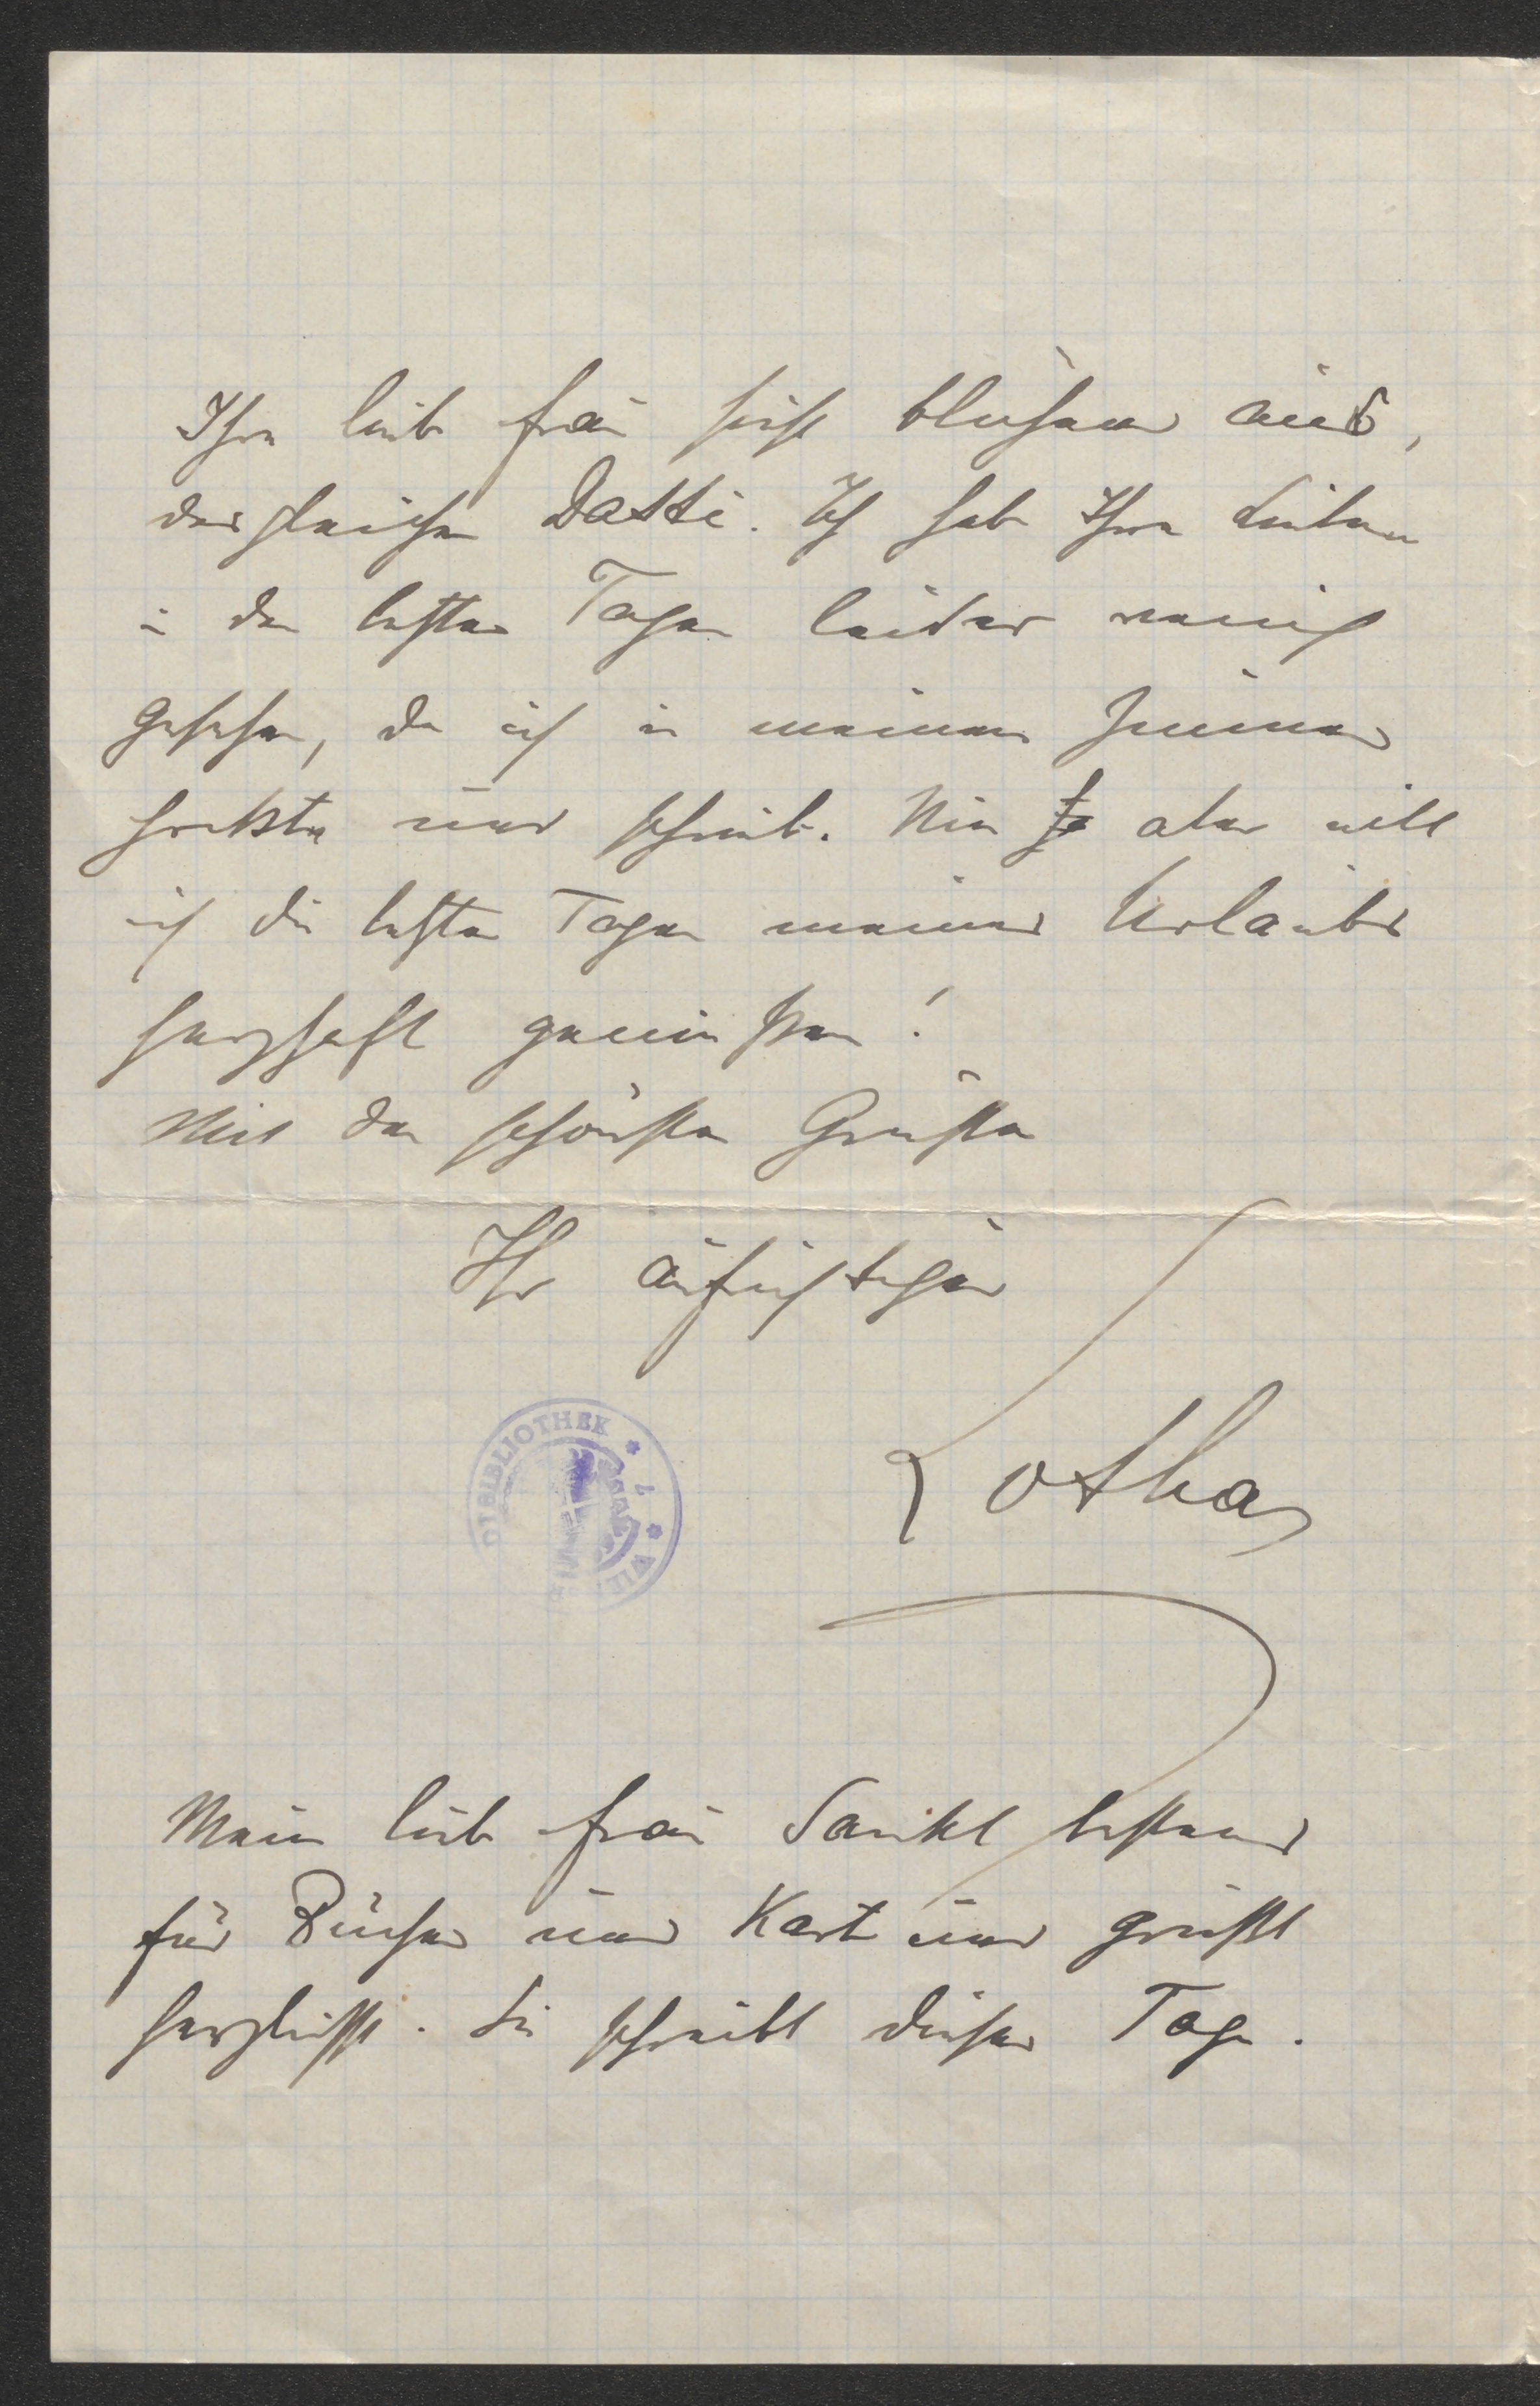 Ihre liebe Frau sieht blühend aus,
desgleichen Datti. Ich habe Ihre Lieben
in den letzten Tagen leider wenig
gesehen, da ich in meinem Zimmer
hockte und schrieb. Nun aber will
ich die letzten Tage meines Urlaubs
herzhaft genießen!
Mit den schönsten Grüßen
Ihr aufrichtiger
Lothar
BIBLIOTHEK
WIE
Meine liebe Frau dankt bestens
für Bücher und Karte und grüßt
herzlichst. Sie schreibt dieser Tage.